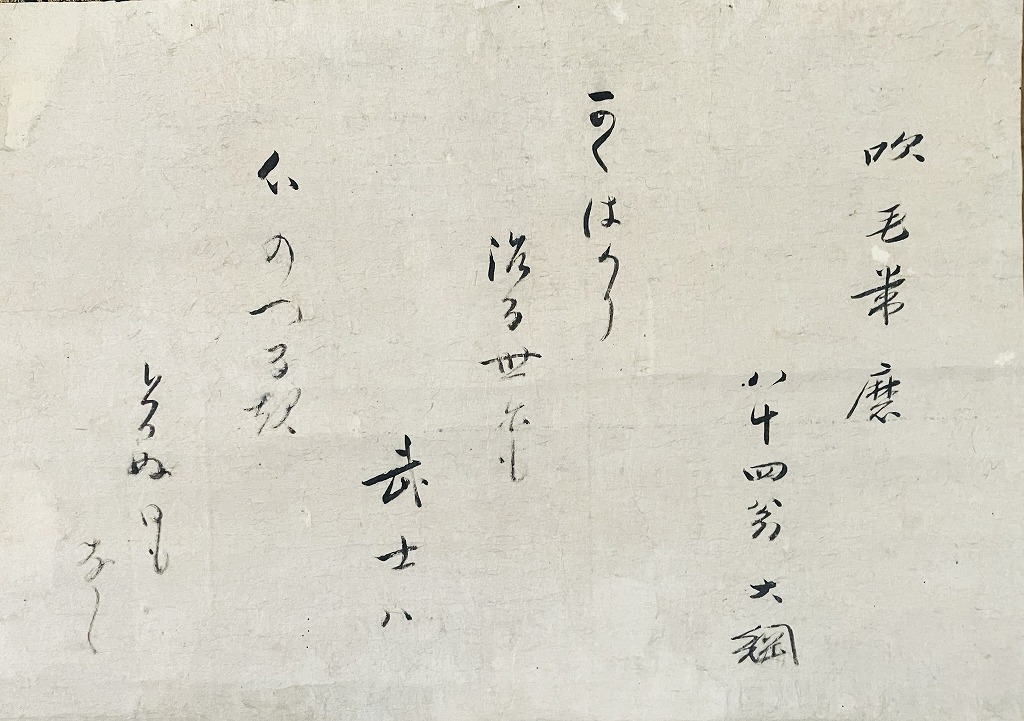 吹毛常磨
八十四翁大綱
かくはかり
治る世にも
武士ハ
心のつるき
とかぬ日も
なし